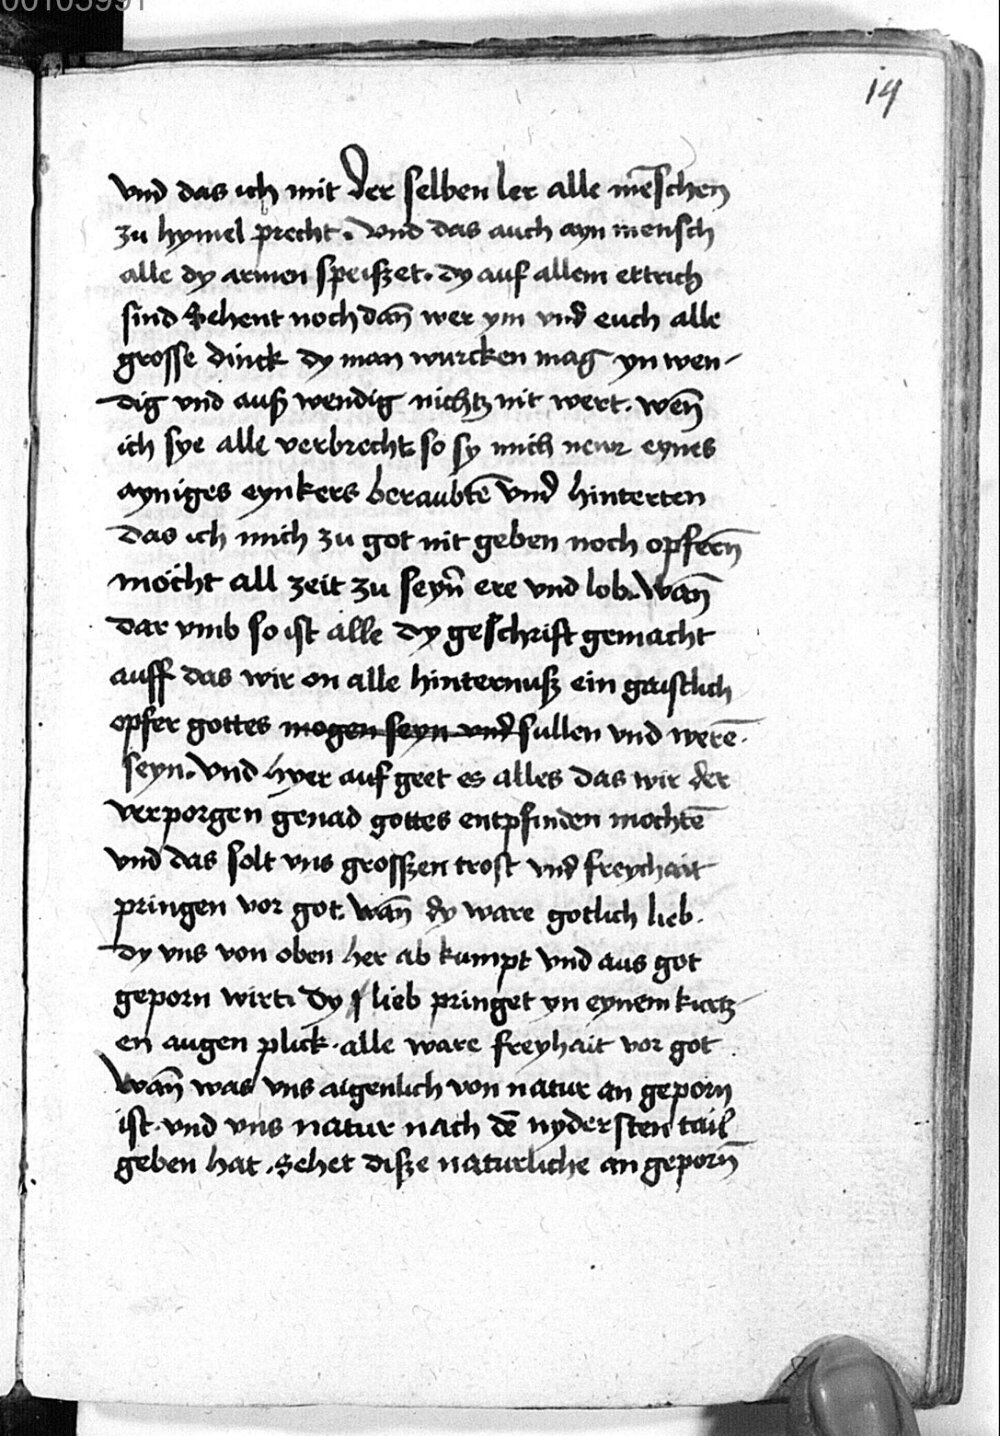 19
vnd das ich mit der selben ler alle mēschen
zu hymel precht. Vnd das auch ayn mensch
alle dy armen speiszet. dy auf allem ertrich
sind Sehent noch dañ wer ym vnd euch alle
grosse dinck dy man wurcken mag yn wen-
dig vnd auß wendig nichtz nit wert. weñ
ich sye alle verbrecht. so sy mich newr eynes
ayniges eynkers beraubtē vnd hinterten
das ich mich zu got nit geben noch opferñ
möcht all zeit zu seyñ ere vnd lob. Wañ
dar vmb so ist alle dy geschrift gemacht
auff das wir on alle hinternusz ein gaistlich
opfer gottes mogen seyn vnd sullen vnd werē.
seyn. Vnd hyer auf geet es alles das wir der
verporgen genad gottes entpfinden mochtē
vnd das solt vns grosszen trost vnd freychait
pringen vor got. Wañ dy ware gotlich lieb.
dy vns von oben her ab kumpt vnd aus got
geporn wirt. Dy lieb pringet yn eynem kurtz-
en augen plick. alle ware freyhait vor got.
Wañ was vns aigenlich von natur an geporn
ist. vnd vns natur nach dē nydersten tail
geben hat. Sehet disze naturliche an geporñ